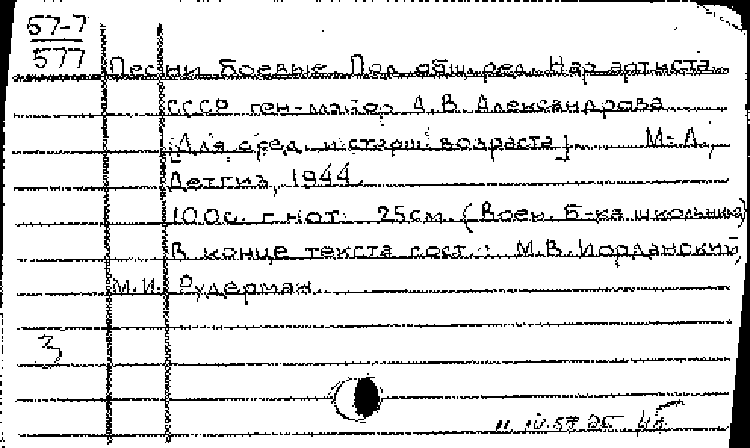 57-7
577
Песни боевые. Под общ. ред. Нар. артиста
СССР ген-майор А.В. Александрова
[Для сред. и старш. возраста]. М-Л,
Детгиз, 1944.
100с. с нот. 25см. (Воен. б-ка школьника)
В конце текста сост.: М.В. Иорданский,
М.И. Рудерман.
3